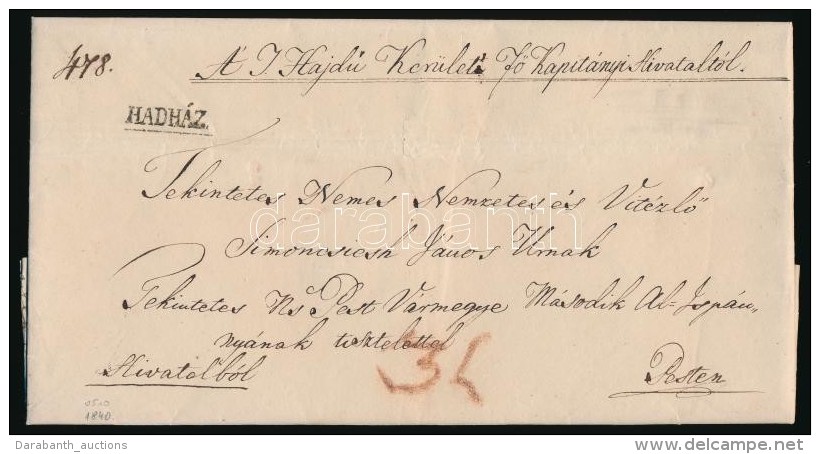 478.
A' J. Hajdú Kerületi Fő Kapitányi Hivataltól.
HADHÁZ
Tekintetes Nemes Nemzetes és Vitézlő
darabanth
Simoncsicsh János Urnak
Tekintetes Ns Pest Vármegye Második Al-Ispán-
nyának tisztelettel
Hivatalból
Pesten
1840.
Darabanth_auctions
www.delcampe.net